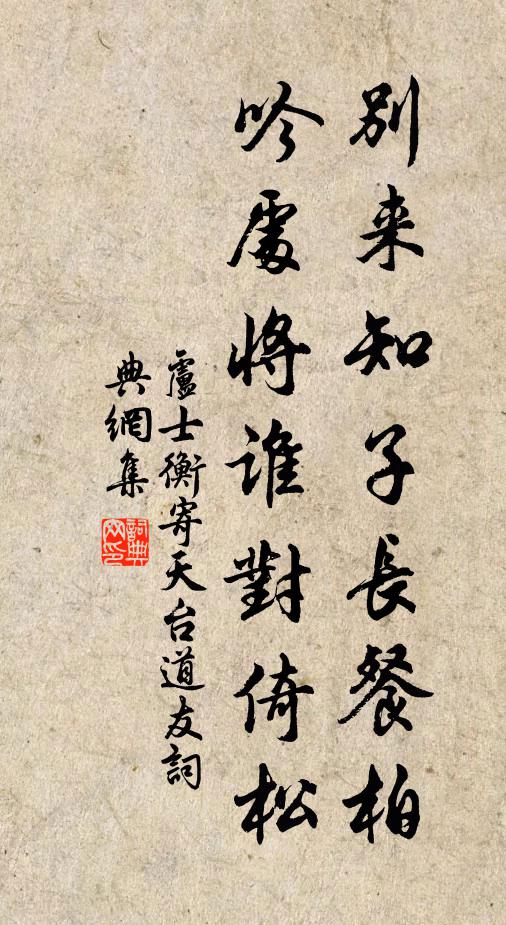 別来知子長餐柏
吟處將誰對倚松
盧士衡寄天台道友詞
典網集
詞典网印